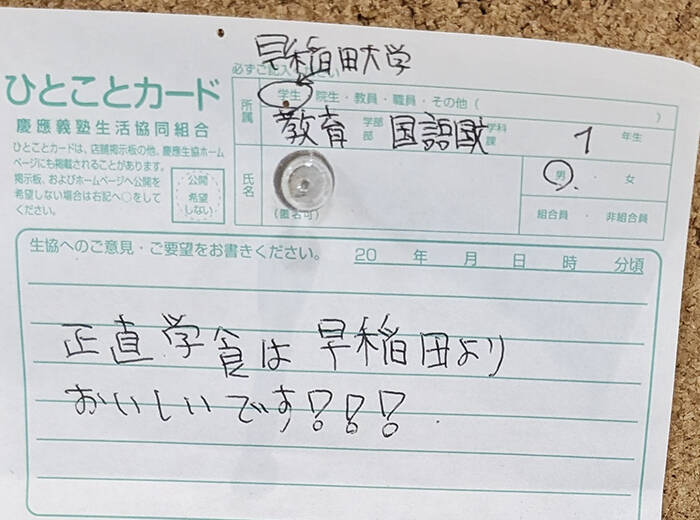 早稲田大学
ひとことカード
慶應義塾生活協同組合
ひとことカードは、店舗掲示板の他、慶應生協ホーム
ページにも掲載されることがあります。
掲示板、およびホームページへ公開を
希望しない場合は右記へ○をして
ください。
公開
希望
しない
必ずご記入ください
所属
学生・院生・教員・職員・その他( )
教育 学部 国語国文 学科 1 年生
部 課
氏名
(匿名可)
男・女
組合員・非組合員
生協へのご意見・ご要望をお書きください。 20 年 月 日 時 分頃
正直学食は早稲田より
おいしいです!!!